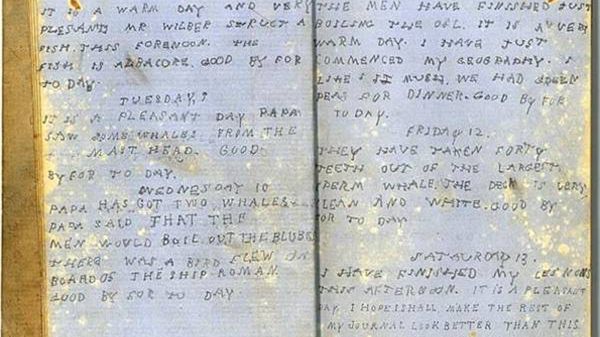 IT IS A WARM DAY AND VERY
PLESANT MR WILBER STRUCT A
FISH THIS FORENOON. THE
FISH IS ALBACORE. GOOD BY FOR
TO DAY.
TUESDAY 9
IT IS A PLEASANT DAY PAPA
SAW SOME WHALES FROM THE
MAST HEAD. GOOD
BY FOR TO DAY.
WEDNESDAY 10
PAPA HAS GOT TWO WHALES
PAPA SAID THAT THE
MEN WOULD BOIL OUT THE BLUBER
THERE WAS A BIRD FLEW ON
BOARD OF THE SHIP ROMAN.
GOOD BY FOR TO DAY.
THE MEN HAVE FINISHED JUST
BOILING THE OIL. IT IS A VERY
WARM DAY. I HAVE JUST
COMMENCED MY GEOGRAPHY. I
LIKE IT MUCH. WE HAD GREEN
PEAS FOR DINNER. GOOD BY FOR
TO DAY.
FRIDAY 12.
THEY HAVE TAKEN FORTY
TEETH OUT OF THE LARGEST
SPERM WHALE. THE DECK IS VERY
CLEAN AND WHITE. GOOD BY
FOR TO DAY
SATAURDAY 13.
I HAVE FINISHED MY LESSONS
THIS AFTERNOON. IT IS A PLEASANT
DAY. I HOPE I SHALL MAKE THE REST OF
MY JOURNAL LOOK BETTER THAN THIS